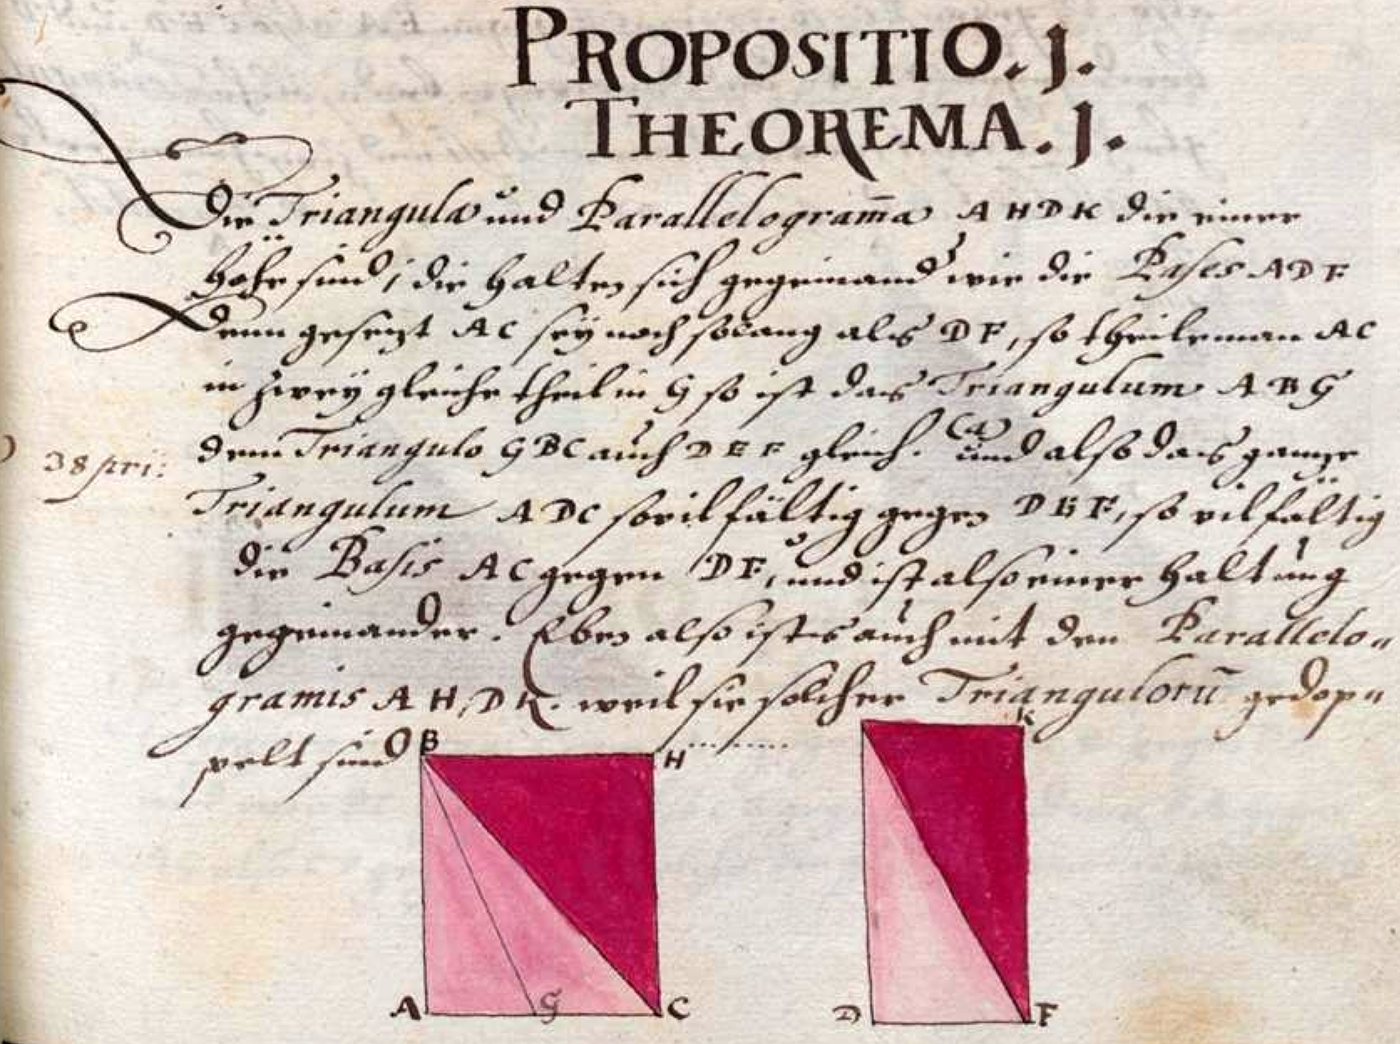 PROPOSITIO. j.
THEOREMA. j.
Die Triangula und Parallelogram̄a A H D K die einer
Höhe sind, die halten sich gegeinand wie die Bases A D F
Denn gesezt A C sey noch so lang als D F, so theile man A C
in zwey gleiche theil in G so ist das Triangulum A B G
dem Triangulo G B C auch D E F gleich. (a) und also das ganze
38 pri:
Triangulum A D C so vilfältig gegen D E F, so vilfältig
die Basis A C gegen D F, und ist also einer haltung
gegeinander. Eben also ists auch mit den Parallelo„
gramis A H, D K. weil sie solcher Trianguloru̅ gedop„
pelt sind
B
H
K
A
G
C
D
F